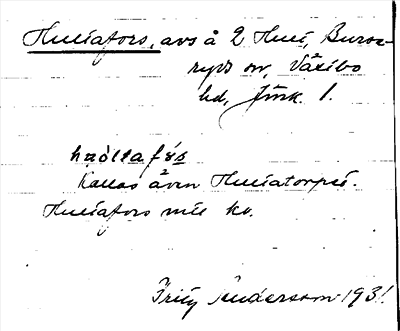 Hultafors, avs å 2 Hult, Burse-
ryds sn, Västbo
hd, Jönk. l.
Kallas även Hultatorpet.
Hultafors kv.
Fritz Andersson 1931